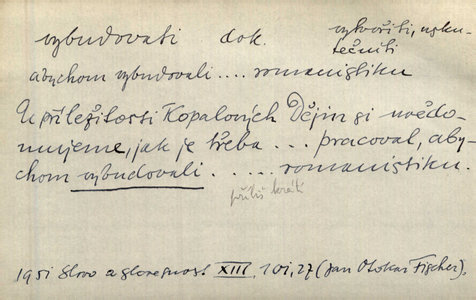 vybudovati dok. vytvořiti, usku-
tečniti
abychom vybudovali .... romanistiku
U příležitosti Kopalových Dějin si uvědo-
mujeme, jak je třeba ... pracoval, aby-
chom vybudovali ..... romanistiku.
příliš krát
1951 Slovo a slovesnost XIII, 101, 27 (Jan Otokar Fischer).